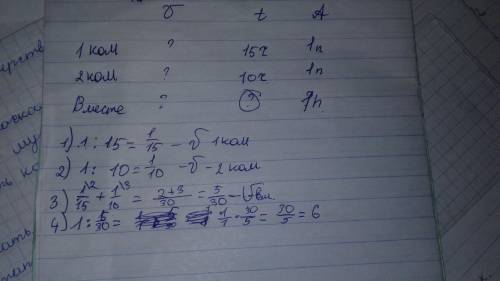 υ t A
1 ком ? 15ч 1п
2 ком ? 10ч 1п
Вместе ? ? 1п
1) 1 : 15 = 1/15 - υ 1 ком
2) 1 : 10 = 1/10 - υ - 2 ком
3) 1\2/15 + 1\3/10 = 2+3/30 = 5/30 - υ вм
4) 1 : 5/30 = 1/1 · 30/5 = 30/5 = 6